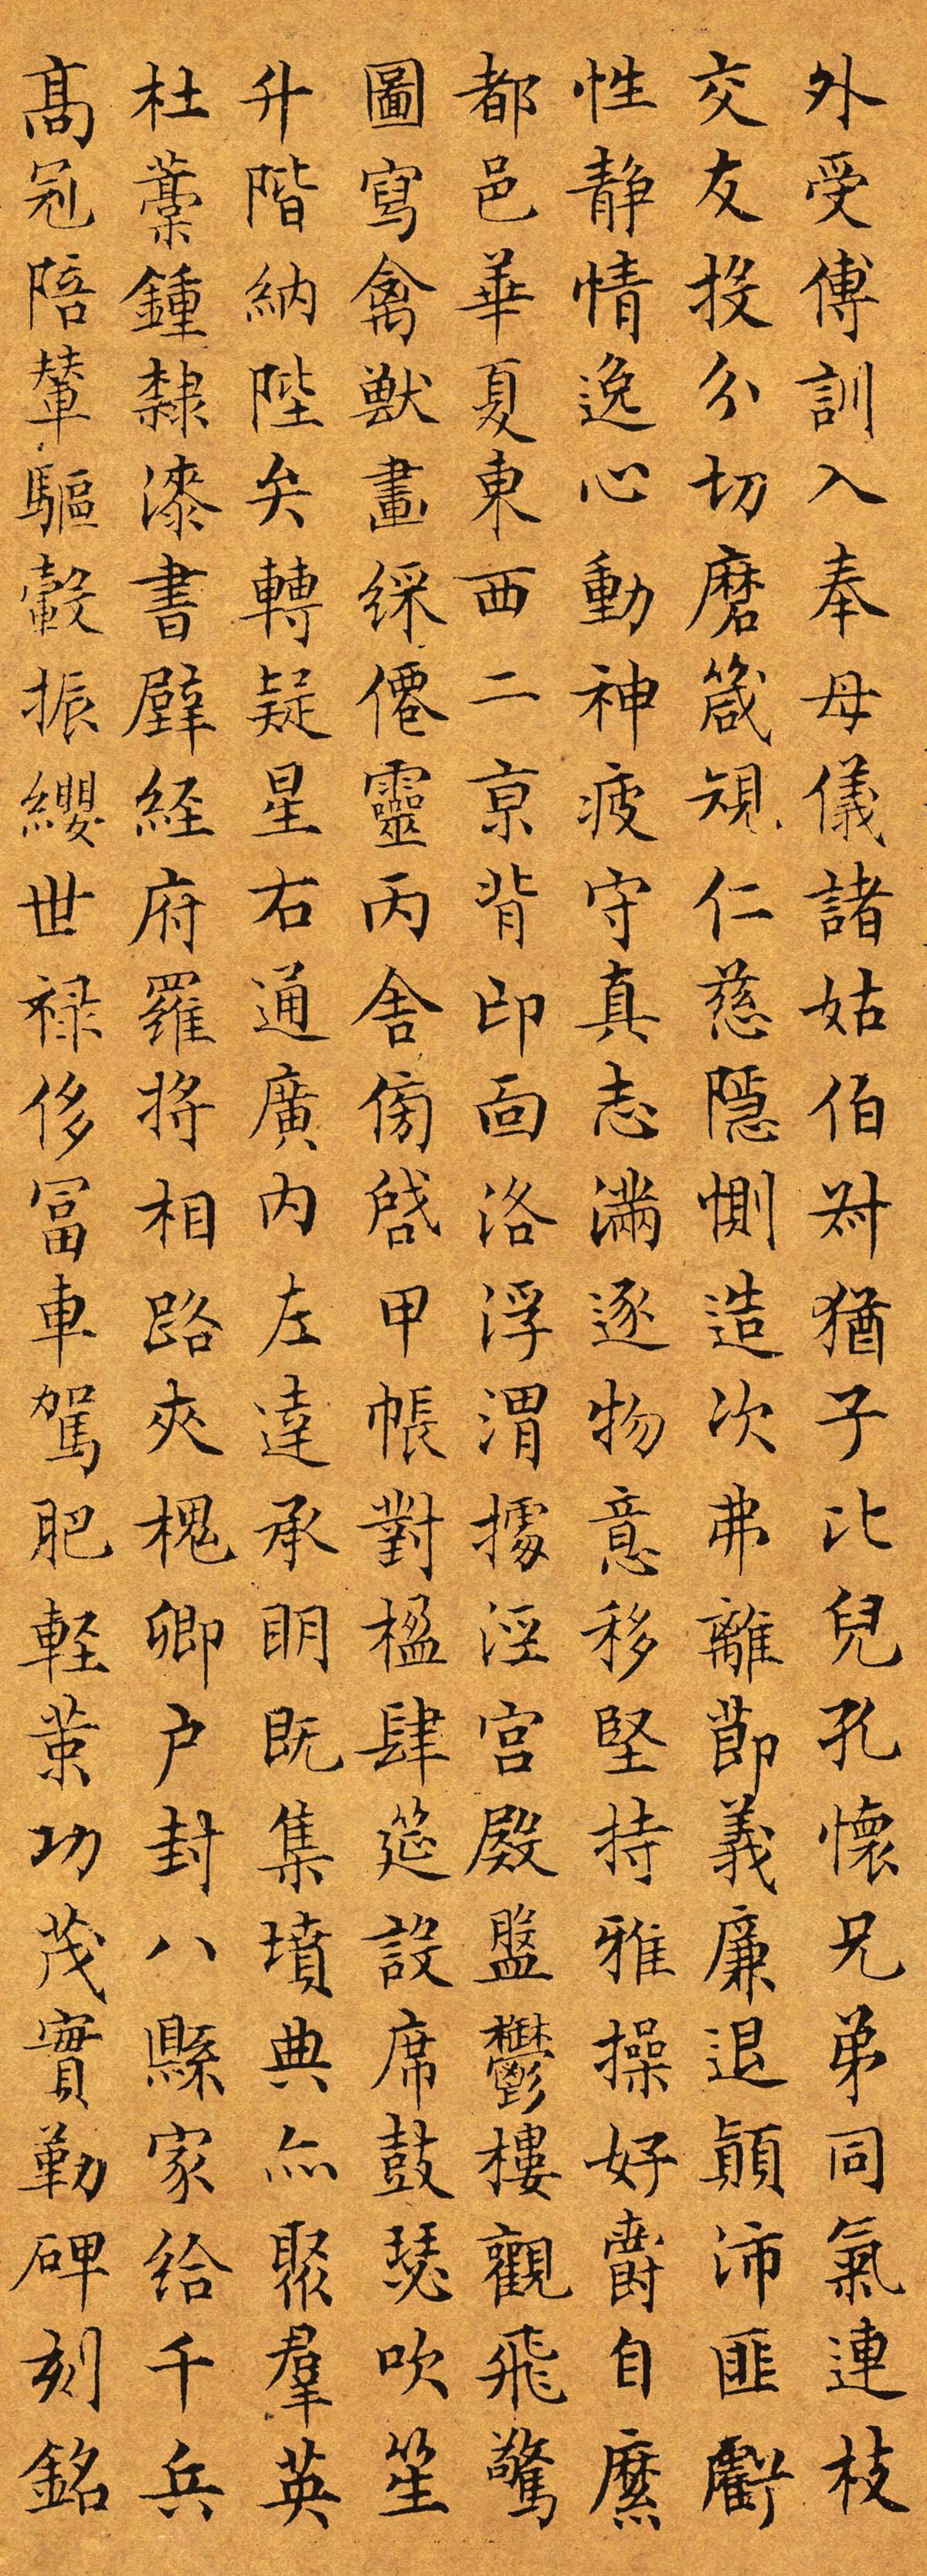 外受傅訓入奉母儀諸姑伯叔猶子比兒孔懷兄弟同氣連枝
交友投分切磨箴規仁慈隱惻造次弗離節義廉退顛沛匪虧
性静情逸心動神疲守真志滿逐物意移堅持雅操好爵自縻
都邑華夏東西二京背邙面洛浮渭據涇宫殿盤鬱樓觀飛驚
圖寫禽獸畫綵僊靈丙舍傍啓甲帳對楹肆筵設席鼓瑟吹笙
升階納陛弁轉疑星右通廣内左達承明既集墳典亦聚羣英
杜藁鍾隸漆書壁経府羅將相路夾槐卿户封八縣家給千兵
髙冠陪輦驅轂振纓世禄侈富車駕肥軽策功茂實勒碑刻銘